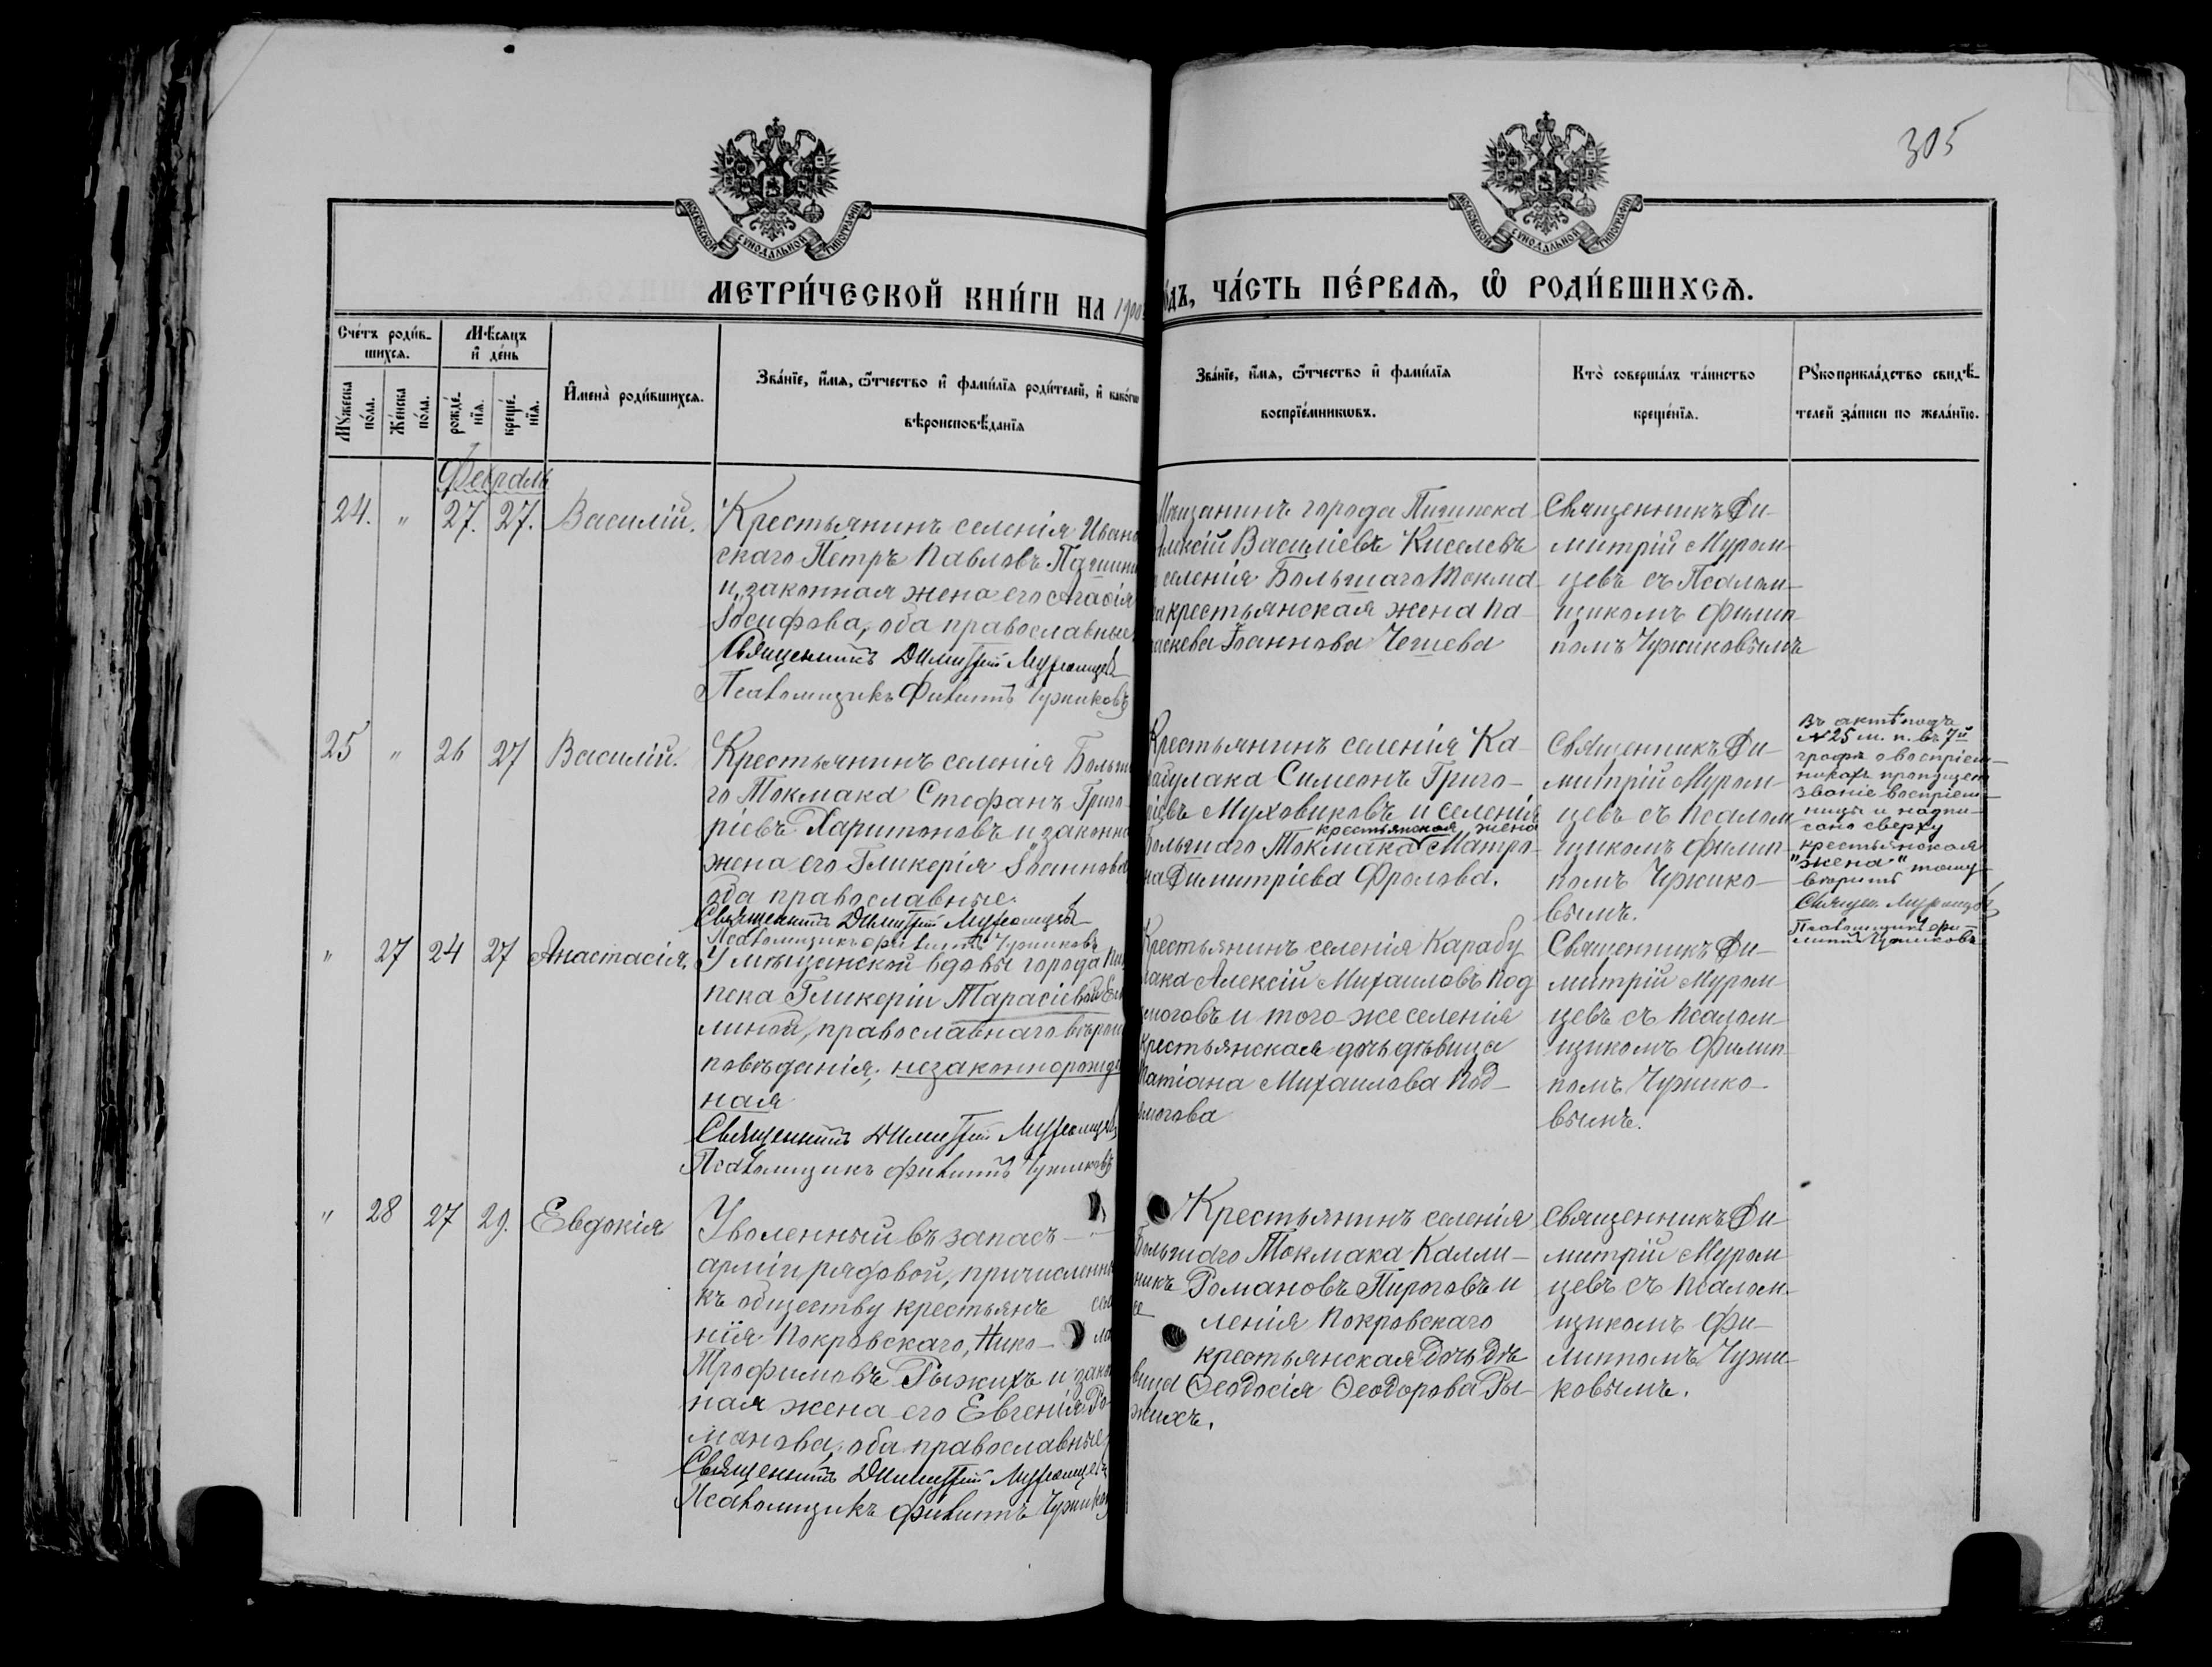 305
МОСКОВСКОЙ СѴНОДАЛЬНОЙ ТИПОГРАФІИ
МОСКОВСКОЙ СѴНОДАЛЬНОЙ ТИПОГРАФІИ
МЕТРИ́ЧЕСКОЙ КНИ́ГИ НА 1900
ЧА́СТЬ ПЕ́РВАѦ, Ѽ РОДИ́ВШИХСѦ.
Сче́тъ роди́в-
шихсѧ.
Мѣ́сѧцъ
и҆ де́нь
Мꙋ́жеска
по́ла.
Же́нска
по́ла.
рожде́-
нїѧ.
креще́-
нїѧ.
И҆мена̀ роди́вшихсѧ.
Зва́нїе, и҆́мѧ, ѻ҆́тчество и҆ фами́лїѧ роди́телей, и҆ како́гѡ
вѣроисповѣ́данїѧ
Зва́нїе, и҆́мѧ, ѻ҆́тчество и҆ фами́лїѧ
воспрїе́мникѡвъ.
Кто̀ соверша́лъ та́инство
креще́нїѧ.
Рꙋкоприкла́дство свидѣ́-
телей за́писи по жела́нїю.
Февраль
24. " 27. 27. Василій.
Крестьянинъ селенія Ивано
скаго Петръ Павловъ
и законная жена его Агаѳія
Іосифова, оба православные
Священникъ Димитрій Муромцевъ
Псаломщикъ Филиппъ Чужиковъ
Мѣщанинъ города
Алексій Василіевъ Киселевъ
селенія Большаго Токма
ка крестьянская жена Па
раскева Іоаннова
Священникъ Ди-
митрій Муром-
цевъ съ Псалом-
щикомъ Филип-
помъ Чужиковымъ
25 " 26 27 Василій.
Крестьянинъ селенія Больша
го Токмака Стефанъ Григо-
ріевъ Харитоновъ и законна
жена его Гликерія Іоаннова
оба православные.
Священникъ Димитрій Муромцевъ
Псаломщикъ Филиппъ Чужиковъ
Крестьянинъ селенія Ка-
рабулака Симеонъ Григо-
ріевъ Муховиковъ и селенія
крестьянская жена
Большаго Токмака Матро-
на Димитріева Фролова.
Священникъ Ди-
митрій Муром-
цевъ съ Псалом-
щикомъ Филип-
помъ Чужико-
вымъ.
Въ актѣ подъ
№ 25 м. п. въ 7й
графѣ о воспріем-
никахъ пропущено
званіе воспріем-
ницы и надпи-
сано сверху
"крестьянская
жена" тому
вѣрить
Священ. Муромцевъ
Псаломщикъ Фи-
липпъ Чужиковъ
" 27 24 27 Анастасія.
У мѣщанской вдовы города
пека Гликеріи Тарасіевой
линой, православнаго вѣроис
повѣданія, незаконнорожде
ная
Священникъ Димитрій Муромцевъ
Псаломщикъ Филиппъ Чужиковъ
Крестьянинъ селенія Карабу
лака Алексій Михаиловъ Под
моговъ и того-же селенія
крестьянская дочь дѣвица
Татіана Михаилова Под-
могова
Священникъ Ди-
митрій Муром-
цевъ съ Псалом-
щикомъ Филип-
помъ Чужико-
вымъ.
" 28 27 29. Евдокія
Уволенный въ запасъ
арміи рядовой, причисленны
къ обществу крестьянъ селе
нія Покровскаго, Нико-ла
Трофимовъ Рыжихъ и закон
ная жена его Евгенія Ро-
манова, оба православные
Священникъ Димитрій Муромцевъ
Псаломщикъ Филиппъ Чужиковъ
Крестьянинъ селенія
Большаго Токмака Калли-
никъ Романовъ Пироговъ и
се
ленія Покровскаго
крестьянская дочь дѣ
вица Ѳеодосія Ѳеодорова Ры-
жихъ.
Священникъ Ди-
митрій Муром-
цевъ съ Псалом-
щикомъ Фи-
липпомъ Чужи-
ковымъ.